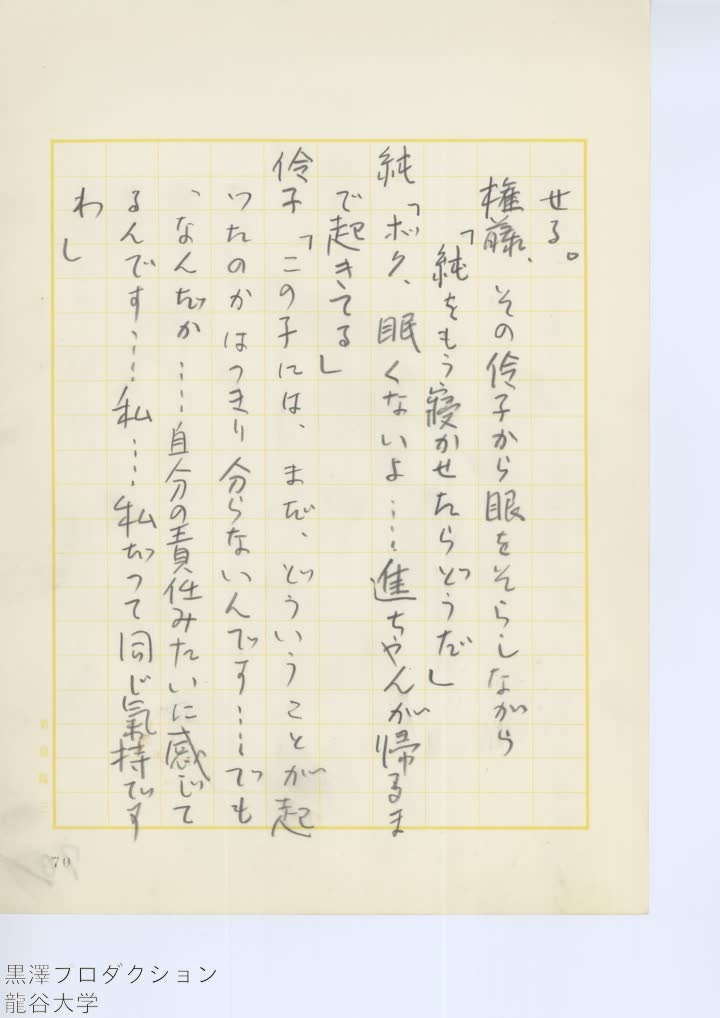 せる。
権藤、その伶子から眼をそらしながら
「純をもう寝かせたらどうだ」
純「ボク、眠くないよ……進ちゃんが帰るま
で起きてる」
伶子「この子には、まだ、どういうことが起
ったのかはっきり分らないんです……でも
、なんだか……自分の責任みたいに感じて
るんです……私……私だって同じ氣持です
わ」
70
黒澤プロダクション
龍谷大学